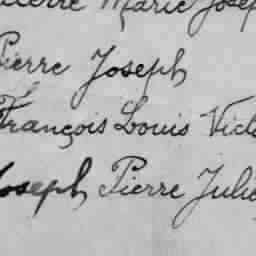 Pierre Marie Joseph
Pierre Joseph
François Louis Victo
Joseph Pierre Julie